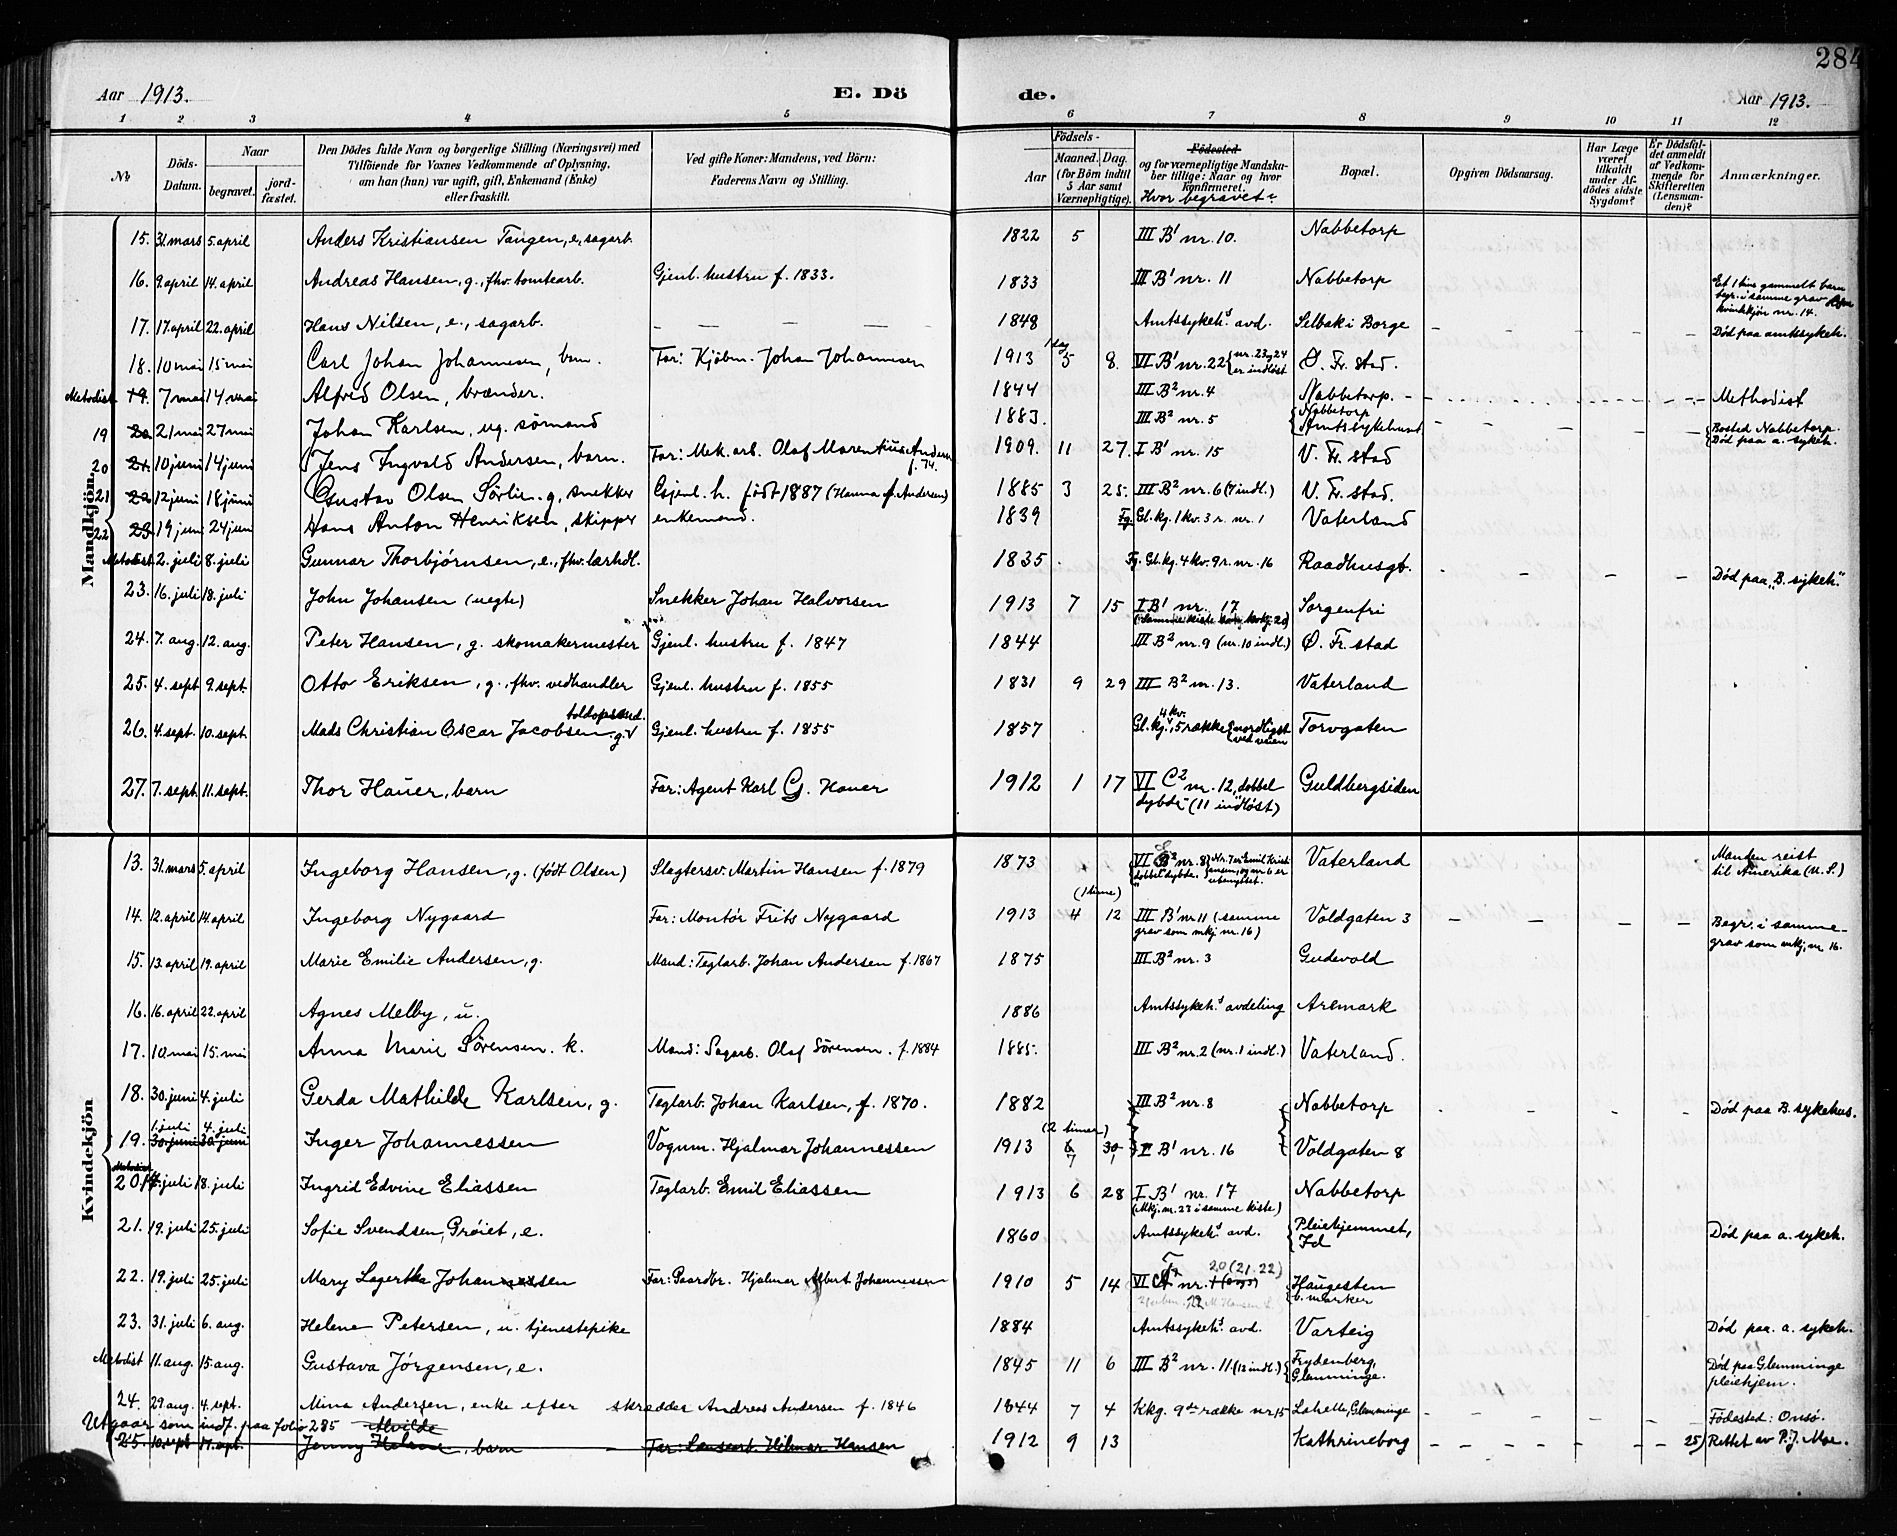 284
Aar 1913. E. Dö de. Aar 1913.
1 2 3 4 5 6 7 8 9 10 11 12
№
Döds-Datum.
Naar
begravet. jord-fæstet.
Den Dödes fulde Navn og borgerlige Stilling (Næringsvei) med
Tilföiende for Voxnes Vedkommende af Oplysning,
om han (hun) var ugift, gift, Enkemand (Enke)
eller fraskilt.
Ved gifte Koner: Mandens, ved Börn:
Faderens Navn og Stilling.
Födsels-
Aar Maaned. Dag.
(for Börn indtil
5 Aar samt
Værnepligtige).
Födested
og for værnepligtige Mandska-
ber tillige: Naar og hvor
konfirmeret.
Hvor begravet?
Bopæl.
Opgiven Dödsaarsag.
Har Læge
været
tilkaldt
under Af-
dödes sidste
Sygdom?
Er Dödsfal-
det anmeldt
af Vedkom-
mende for
Skifteretten
(Lensman-
den)?
Anmærkninger.
Mandkjön.
15. 31. mars 5. april Anders Kristiansen Tangen, e, sagarb. 1822 5 III B¹ nr. 10. Nabbetorp
16. 9. april 14. april Andreas Hansen, g., fhv. tomtearb. Gjenl. hustru f. 1833. 1833 III B¹ nr. 11 Nabbetorp Et 1 time gammelt barn begr. i samme grav kvindekjön nr. 14.
17. 17. april 22. april Hans Nilsen, e., sagarb. — — — — 1848 Amtssykeh.s avd. Selbak i Borge — — — — Död paa amtssykeh.
18. 10 mai 15 mai Carl Johan Johannesen, barn. Far: Kjöbm. Johan Johannesen 1913 1 dag 5 8. VI B¹ nr. 22 {nr. 23 og 24 er indlöst Ø. Fr. stad.
Metodist 19. 7 mai 14 mai Alfred Olsen, brænder. 1844 III B² nr. 4 Nabbetorp. Methodist
19 20 21 mai 27 mai Johan Karlsen, ug. sömand 1883. III B² nr. 5 {Nabbetorp Amtssykehuset — — — — Bosted Nabbetorp. Död paa a. sykeh.
20 21. 10 juni 14 juni Jens Ingvald Andersen, barn. Far: Mek. arb. Olaf Marentius Andersen f. 74. 1909. 11 27. I B¹ nr. 15 V. Fr. stad
21 22 12 juni 18 juni Gustav Olsen Sörlie. g, snekker Gjenl. h. födt 1887 (Hanna f. Andersen) 1885 3 25. III B² nr. 6 (7 indl.) V. Fr. stad.
22 23 19 juni 24 juni Hans Anton Henriksen, skipper enkemand. 1839 Fg. Gl. kg. 1 kv. 3 r. nr. 1 Vaterland
Metodist 2. juli 8. juli Gunnar Thorbjörnsen, e., fhv. lærhdl. 1835. Fg. Gl. kg. 4 kv. 9 r. nr. 16 Raadhusgt. — — — Död paa "B. sykeh."
23. 16. juli 18. juli John Johansen (uegte) Snekker Johan Halvorsen 1913 7 15 I B¹ nr. 17 Sorgenfri
24. 7. aug. 12. aug. Peter Hansen, g. skomakermester Gjenl. hustru f. 1847 1844 III B² nr. 9 (nr. 10 indl.) Ø. Fr. stad
25. 4. sept 9. sept. Otto Eriksen, g., fhv. vedhandler Gjenl. hustru f. 1855 1831 9 29 III B² nr. 13. Vaterland
26. 4. sept. 10. sept. Mads Christian Oscar Jacobsen g. Gjenl. hustru f. 1855 1857 Gl. kg. 4 kv. 5 række {nordligst ved veien Torvgaten
27. 7. sept. 11. sept. Thor Hauer, barn Far: Agent Karl G. Hauer 1912 1 17 VI C² nr. 12, dobbel dybde (11 indlöst) Guldbergsiden
Kvindekjön
13. 31. mars 5. april Ingeborg Hansen, g. (födt Olsen) Slagtersv. Martin Hansen f. 1879 1873 VI B² nr. 8 dobbel dybde. Vaterland Manden reist til Amerika (U. S.)
14. 12. april 14. april Ingeborg Nygaard Far: Montör Frits Nygaard 1913 (1 time) 4 12 III B¹ nr 11 (samme grav som mkj nr. 16) Voldgaten 3 — — — — Begr. i samme grav som mkj. nr. 16.
15. 13. april 19. april Marie Emilie Andersen, g. Mand: Teglarb. Johan Andersen f. 1867 1875 III B² nr. 3 Gudevold
16. 16. april 22. april Agnes Melby, u. 1886 Amtssykeh.s avdeling Aremark
17. 10. mai 15. mai Anna Marie Sörensen. k. Mand: Sagarb. Olaf Sörensen. f. 1884 1885. III B² nr. 2 (nr. 1 indl.) Vaterland.
18. 30. juni 4. juli Gerda Mathilde Karlsen, g. Teglarb. Johan Karlsen, f. 1870. 1882 III B² nr. 8 Nabbetorp Död paa B. sykehus.
19. 1. juli 4. juli 30. juni 30. juni Inger Johannessen Vognm. Hjalmar Johannessen 1913 (2 timer) 6 7 30 1 I B¹ nr. 16 Voldgaten 8
Metodist 20. juli 18. juli Ingrid Edvine Eliassen Teglarb. Emil Eliassen 1913 6 28 I B¹ nr. 17 (Mkj. nr. 23 i samme kiste) Nabbetorp
21. 19. juli 25. juli Sofie Svendsen Pröiet, e. 1860 Amtssykeh.s avd. {Pleiehjemmet, Id Död paa a. sykeh.
22. 19. juli 25. juli Mary Lagertha Johannessen Far: Gaardbr. Hjalmar Albert Johannessen 1910 5 14 VI nr. 20 (21. 22) Haugesten b. marker
23. 31. juli 6. aug. Helene Petersen, u. tjenestepike 1884 Amtssykeh.s avd. Varteig Död paa a. sykeh.
Metodist 11. aug. 15. aug. Gustava Jörgensen, e. 1845 11 6 III B² nr. 11 (12 indl.) {Frydenberg, Glemminge. Död paa Glemminge pleiehjem.
24. 29. aug. 4. sept. Mina Andersen, enke efter skrædder Andreas Andersen f. 1846 1844 7 4 Kkg. 9de række nr 15 Lahelle, Glemminge — — — — Födested: Onsö.
Utgaar som indf. paa folio 285 Alvilde
25. 10. sept 17. sept. Jenny Helene, barn — Far: Hilmar Hansen 1912 9 13 Kathrineborg — — — — 25) Rettet av P. J. Moe.